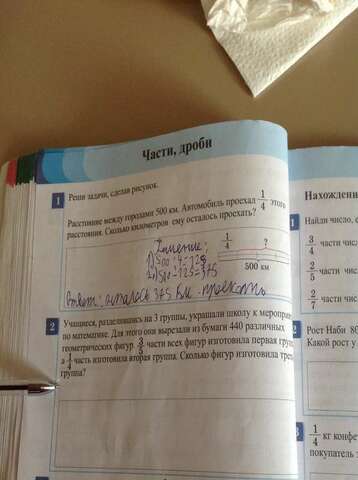 Части, дроби
1 Реши задачи, сделав рисунок.
Расстояние между городами 500 км. Автомобиль проехал 1/4 этого
расстояния. Сколько километров ему осталось проехать?
1/4 ?
1) 500:4=125
2) 500-125=375
500 км
Ответ: осталось 375 км. проехать
2 Учащиеся, разделившись на 3 группы, украшали школу к
по математике. Для этого они вырезали из бумаги 440 различных
геометрических фигур. части всех фигур изготовила первая
а 1/4 часть изготовила вторая группа. Сколько фигур изготовила
группа?
1 Найди число,
3/4 части
2/5 части
2/7 части
2 Рост Наби
Какой рост у
3 1/4 кг
покупатель